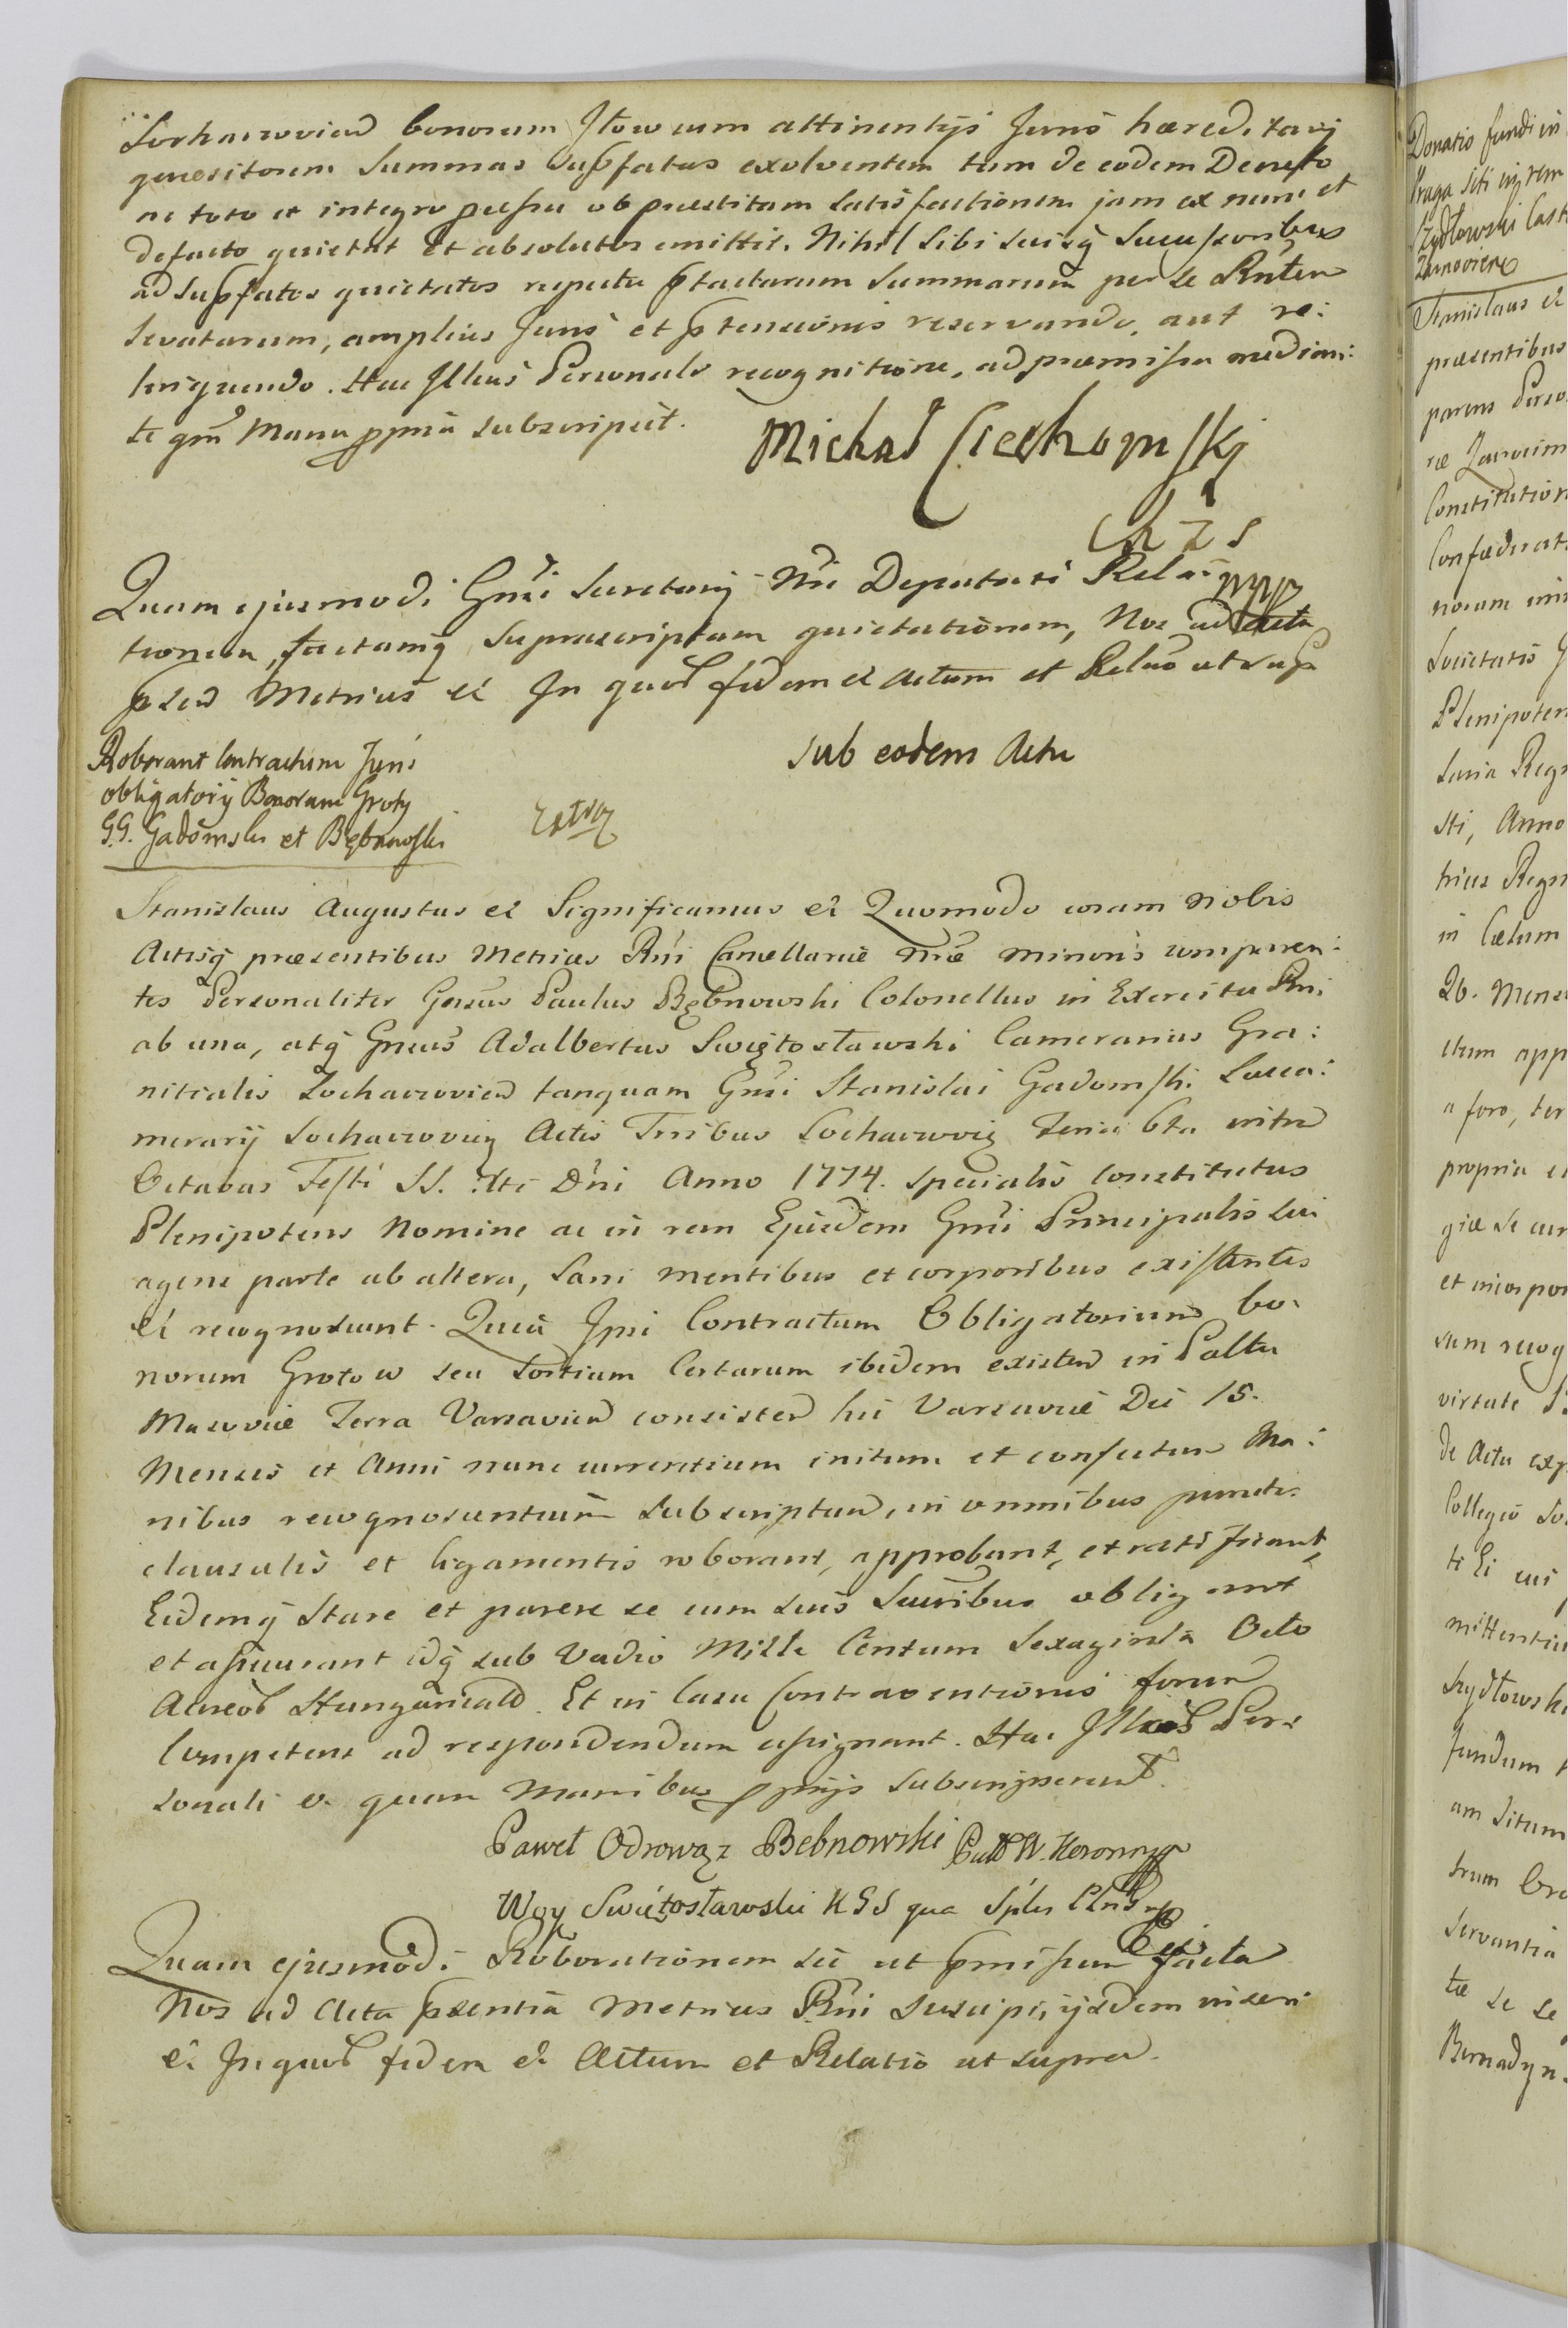 Sochaczovien bonorum Iłow cum attinentijs Juris hæreditarij
quæsitorem summas supfatas exolventem tum de eodem Decreto
ac toto et integro præssu ob præstitam satisfactionem jam ex nunc et
defacto quietat et absolutos emittit. Nihil sibi suisq Successoribus
ad supfatos quietatos respectu ptactarum Summarum per se Rnten
levatarum, amplius Juris et ptensionis reservando, aut re:
linquendo. Hac Illius Personali recognitione, ad præmissa median:
te qm Manu ppria subscripsit.
Michał Ciechomski
Ch Z S
mpp
Quam ejusmodi Gnsi Secretarij Nri Deputati Rela:
tionem, factamq suprascriptam quietationem, Nos ad Acta
psen Metrices ec In quor fidem ec Actum et Relao ut sup
Roborant Contractum Juris
obligatorij Bonorum Groty
G.G. Gadomski et Bębnowski
Extra
sub eodem Actu
Stanislaus Augustus ec Significamus ec Quomodo coram nobis
Actisq præsentibus Metrices Rni Cancellariæ nræ minoris comparen:
tes Personaliter Gnsus Paulus Bębnowski Colonellus in Exercitu Rni
ab una, atq Gnsus Adalbertus Swiętosławski Camerarius Gra:
nitialis Sochaczovien tanquam Gnsi Stanislai Gadomski Succa:
merarij Sochaczovien Actis Trribus Sochaczovien Feria 6ta intra
Octavas Festi SS. Xti Dni Anno 1774. specialis constitutus
Plenipotens Nomine ac in rem Ejusdem Gnsi Principalis sui
agens parte ab altera, Sani mentibus et corporibus existentes
ec recognoscunt. Quia Ipsi Contractum Obligatorium bo:
norum Grotow seu Sortium Certarum ibidem existen in Paltu
Masoviæ Terra Varsavien consisten hic Varsaviæ Die 15.
Mensis et Anni nunc currentium initum et confectum Ma:
nibus recognoscentium subscriptum, in omnibus punctis
clausulis et ligamentis roborant, approbant, et ratificant,
Eidemq Stare et parere se cum suis Succribus obligant
et assecurant idq sub Vadio Mille Centum Sexaginta Octo
Aureor Hungarical. Et in casu Contraventionis forum
Competens ad respondendum assignant. Hac Illror Per:
sonali ec quam Manibus pprijs subscripserunt.
Paweł Odrowąz Bębnowski Puł W. Koronnyp
Woy Swiętosławski KGS qua Splis Plns mp
Quam ejusmodi Roborationem sic ut pmissum factam
Nos ad Acta psentia Metrices Rni suscipi, ijsdem inseri
ec In quor fidem ec Actum et Relatio ut supra.
Donatio fundi in
Praga siti in rem
Szydłowski Cast
Zarnovien
Stanislaus ec
præsentibus
parens Perso
Constitution
Confæderat
Societatis
Plenipoten
saria Regn
sti, Anno
trices Regn
in Cætum
26. Mens
ctum app
a foro, ter
propria et
giæ se cum
et incorpor
sum recog
virtute
de Actu exp
Collegio
ti Ei cui
mittentiu
Szydłowski
fundum
am Situm
trum
servantia
tæ se se
Bernadyn